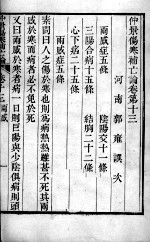 仲景傷寒補亡論卷第十三
河南郭雍撰次
兩感症五條
陰陽交十一條
三陽合病六條
結胸二十二條
心下痞二十五條
兩感症五條
素問曰人之傷於寒也則為病熱熱雖甚不死其兩
感於寒而病者必不免於死
又曰兩感於寒者病一日則巨陽與少陰俱病則頭